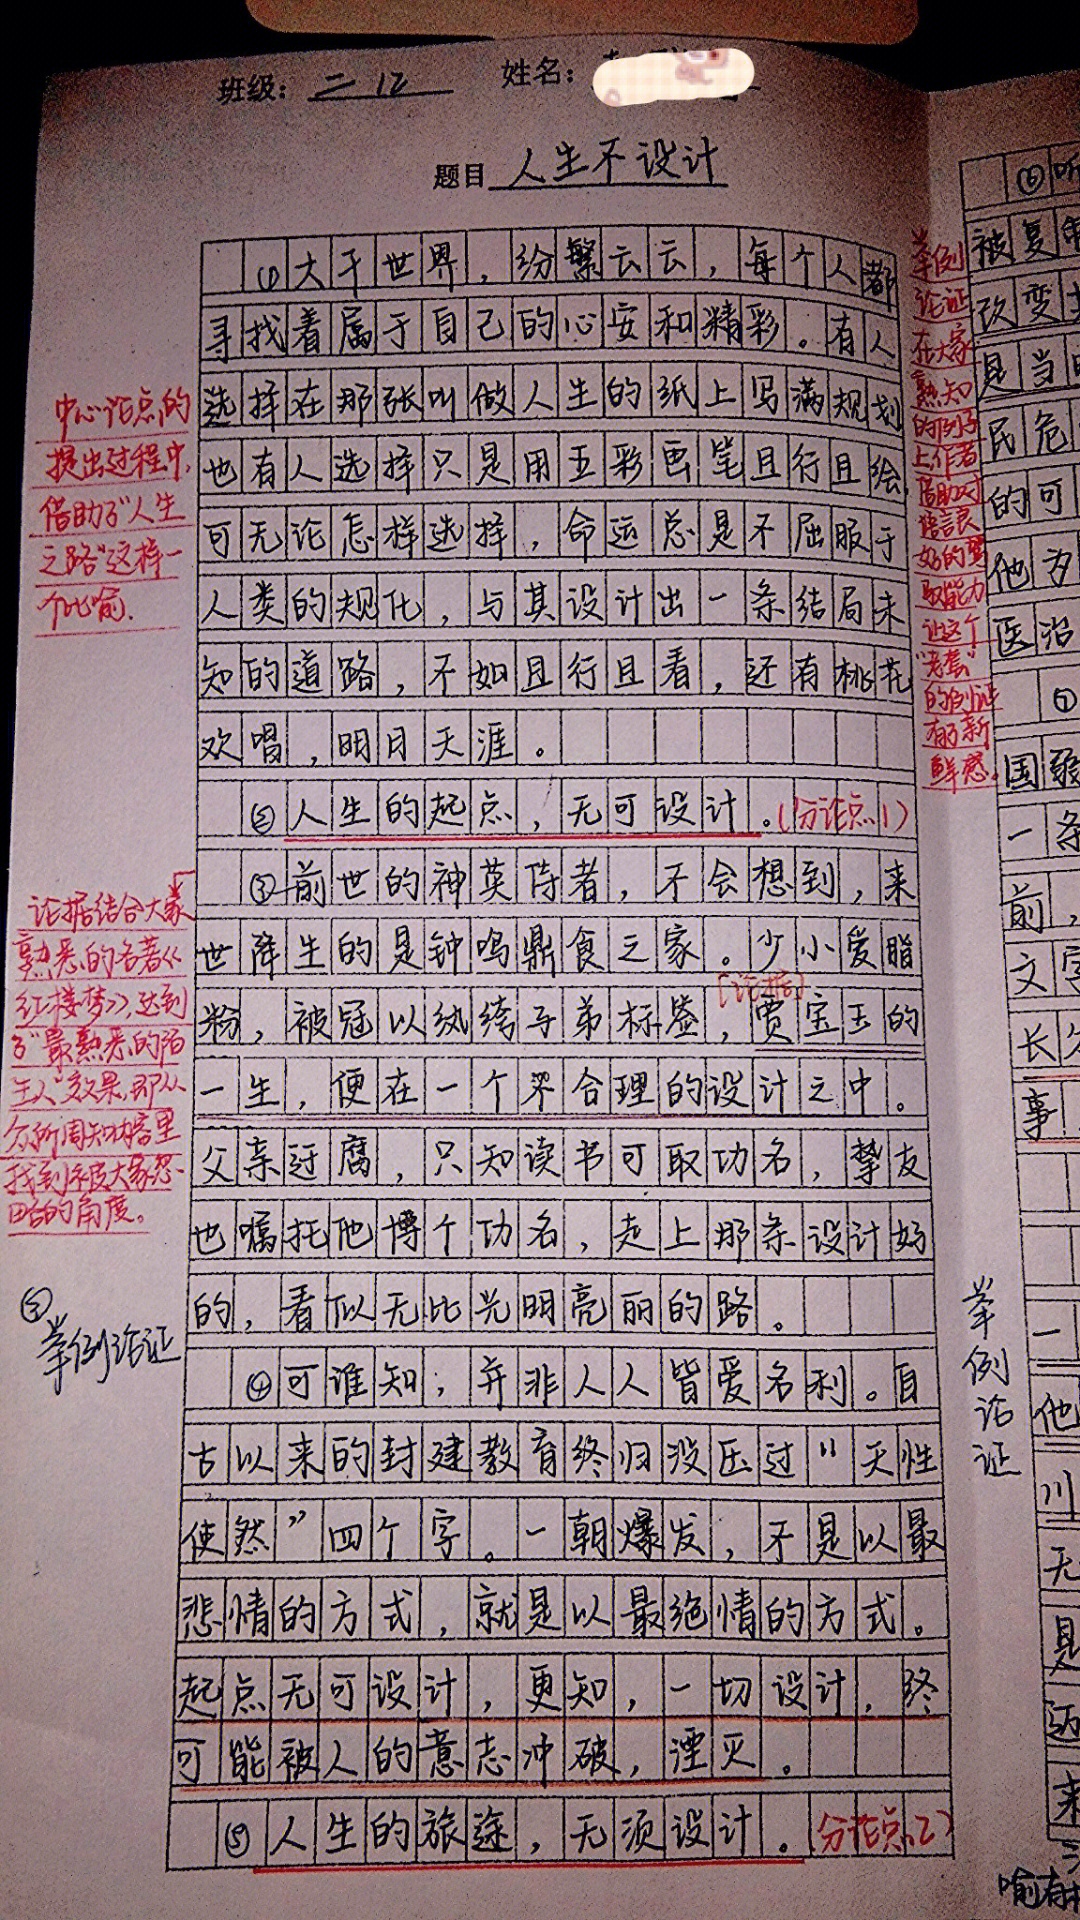 班级：二12 姓名：
题目 人生不设计
①大千世界，纷繁云云，每个人都
寻找着属于自己的心安和精彩。有人
选择在那张叫做人生的纸上写满规划
也有人选择只是用五彩画笔且行且绘，
可无论怎样选择，命运总是不屈服于
人类的规化，与其设计出一条结局未
知的道路，不如且行且看，还有桃花
欢唱，明月天涯。
②人生的起点，无可设计。(分论点1)
③前世的神英侍者，不会想到，来
世降生的是钟鸣鼎食之家。少小爱脂
粉，被冠以纨绔子弟标签，贾宝玉的
[论据]
一生，便在一个不合理的设计之中。
父亲迂腐，只知读书可取功名，挚友
也嘱托他博个功名，走上那条设计好
的，看似无比光明亮丽的路。
④可谁知，并非人人皆爱名利。自
古以来的封建教育终归没压过"天性
使然"四个字。一朝爆发，不是以最
悲情的方式，就是以最绝情的方式。
起点无可设计，更知，一切设计，终
可能被人的意志冲破，湮灭。
⑤人生的旅途，无须设计。(分论点2)
中心论点的
提出过程中，
借助了"人生
之路"这样一
个比喻.
论据结合大家
熟悉的名著《
红楼梦》，达到
了"最熟悉的陌
生人"效果，即从
众所周知的内容里
找到被大家忽
略的角度。
③
举例论证
举例
论证
在大家
熟知
的例子
上作者
借助对
语言良
好的驾
驭能力
让这个
"老套"
的例证
有了新
鲜感。
举
例
论
证
⑥听
被复
改变
是当
民危
的可
他为
医治
⑦
国
一条
前，
文字
长
事！
一
他
川
无
是
迈
来
喻有